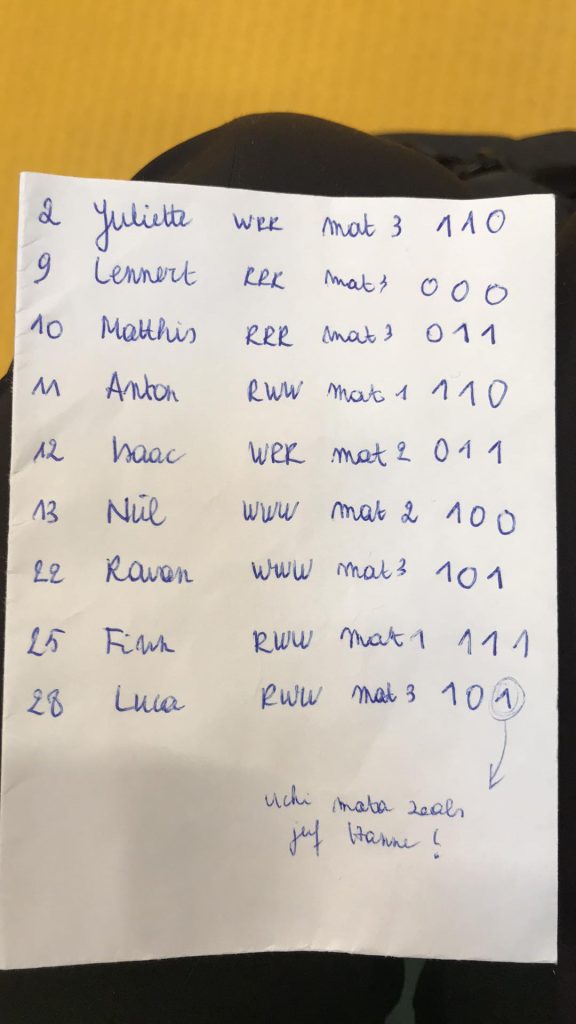 2 Juliette WRR mat 3 110
9 Lennert RRR mat 3 000
10 Matthis RRR mat 3 011
11 Anton RWW mat 1 110
12 Isaac WRR mat 2 011
13 Niel WWW mat 2 100
22 Ravan WWW mat 3 101
25 Finn RWW mat 1 111
28 Luca RWW mat 3 101
uchi mata zoals
juf Hanne !